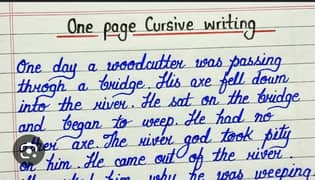 One page Cursive writing
One day a woodcutter was passing
throgh a bridge. His axe fell down
into the river. He sat on the bridge
and began to weep. He had no
other axe. The river god took pity
on him. He came out of the river.
him why he was weeping